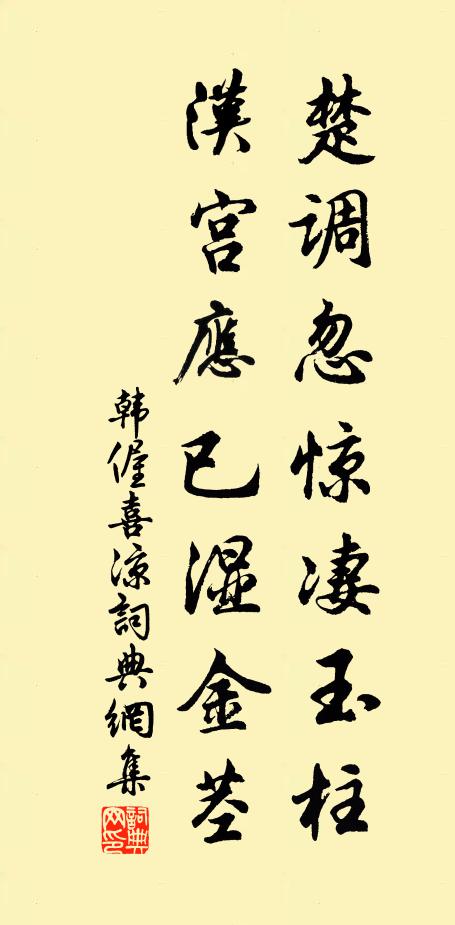 楚调忽惊凄玉柱
漢宫應已湿金茎
韩偓喜凉詞典網集
詞典
网印